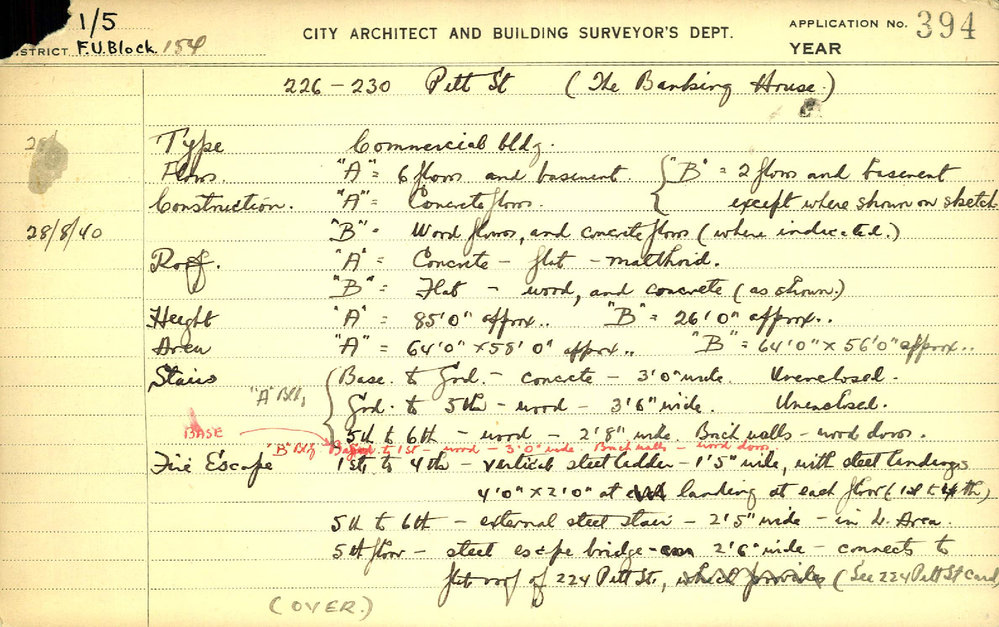 1/5
DISTRICT F.U.Block. 154
CITY ARCHITECT AND BUILDING SURVEYOR'S DEPT.
APPLICATION No. 394
YEAR
226 - 230 Pitt St (The Banking House.)
28/
Type Commercial bldg.
Floors. "A" = 6 floors and basement. { "B" = 2 floors and basement
Construction. "A" = Concrete floors. except where shown on sketch
28/8/40 "B" = Wood floors, and concrete floors (where indicated.)
Roof. "A" = Concrete - flat - malthoid.
"B" = Flat - wood, and concrete (as shown.)
Height "A" = 85'0" approx.. "B" = 26'0" approx..
Area "A" = 64'0" x 58'0" approx.. "B" = 64'0" x 56'0" approx..
Stairs "A" Bldg { Base. to Grd. - concrete - 3'0" wide. Unenclosed.
Grd. to 5th - wood - 3'6" wide. Unenclosed.
5th to 6th - wood - 2'8" wide. Brick walls - wood doors.
BASE
"B" Bldg to 1st - wood - 3'0" wide Brick walls - wood doors
Fire Escape 1st to 4th - vertical steel ladder - 1'5" wide, with steel landings
4'0" x 2'0" at landing at each floor (1st to 4th)
5th to 6th - external steel stair - 2'5" wide - in L. Area.
5th floor - steel escape bridge - 2'6" wide - connects to
flat roof of 224 Pitt St, which provides (See 224 Pitt St Card)
(OVER.)